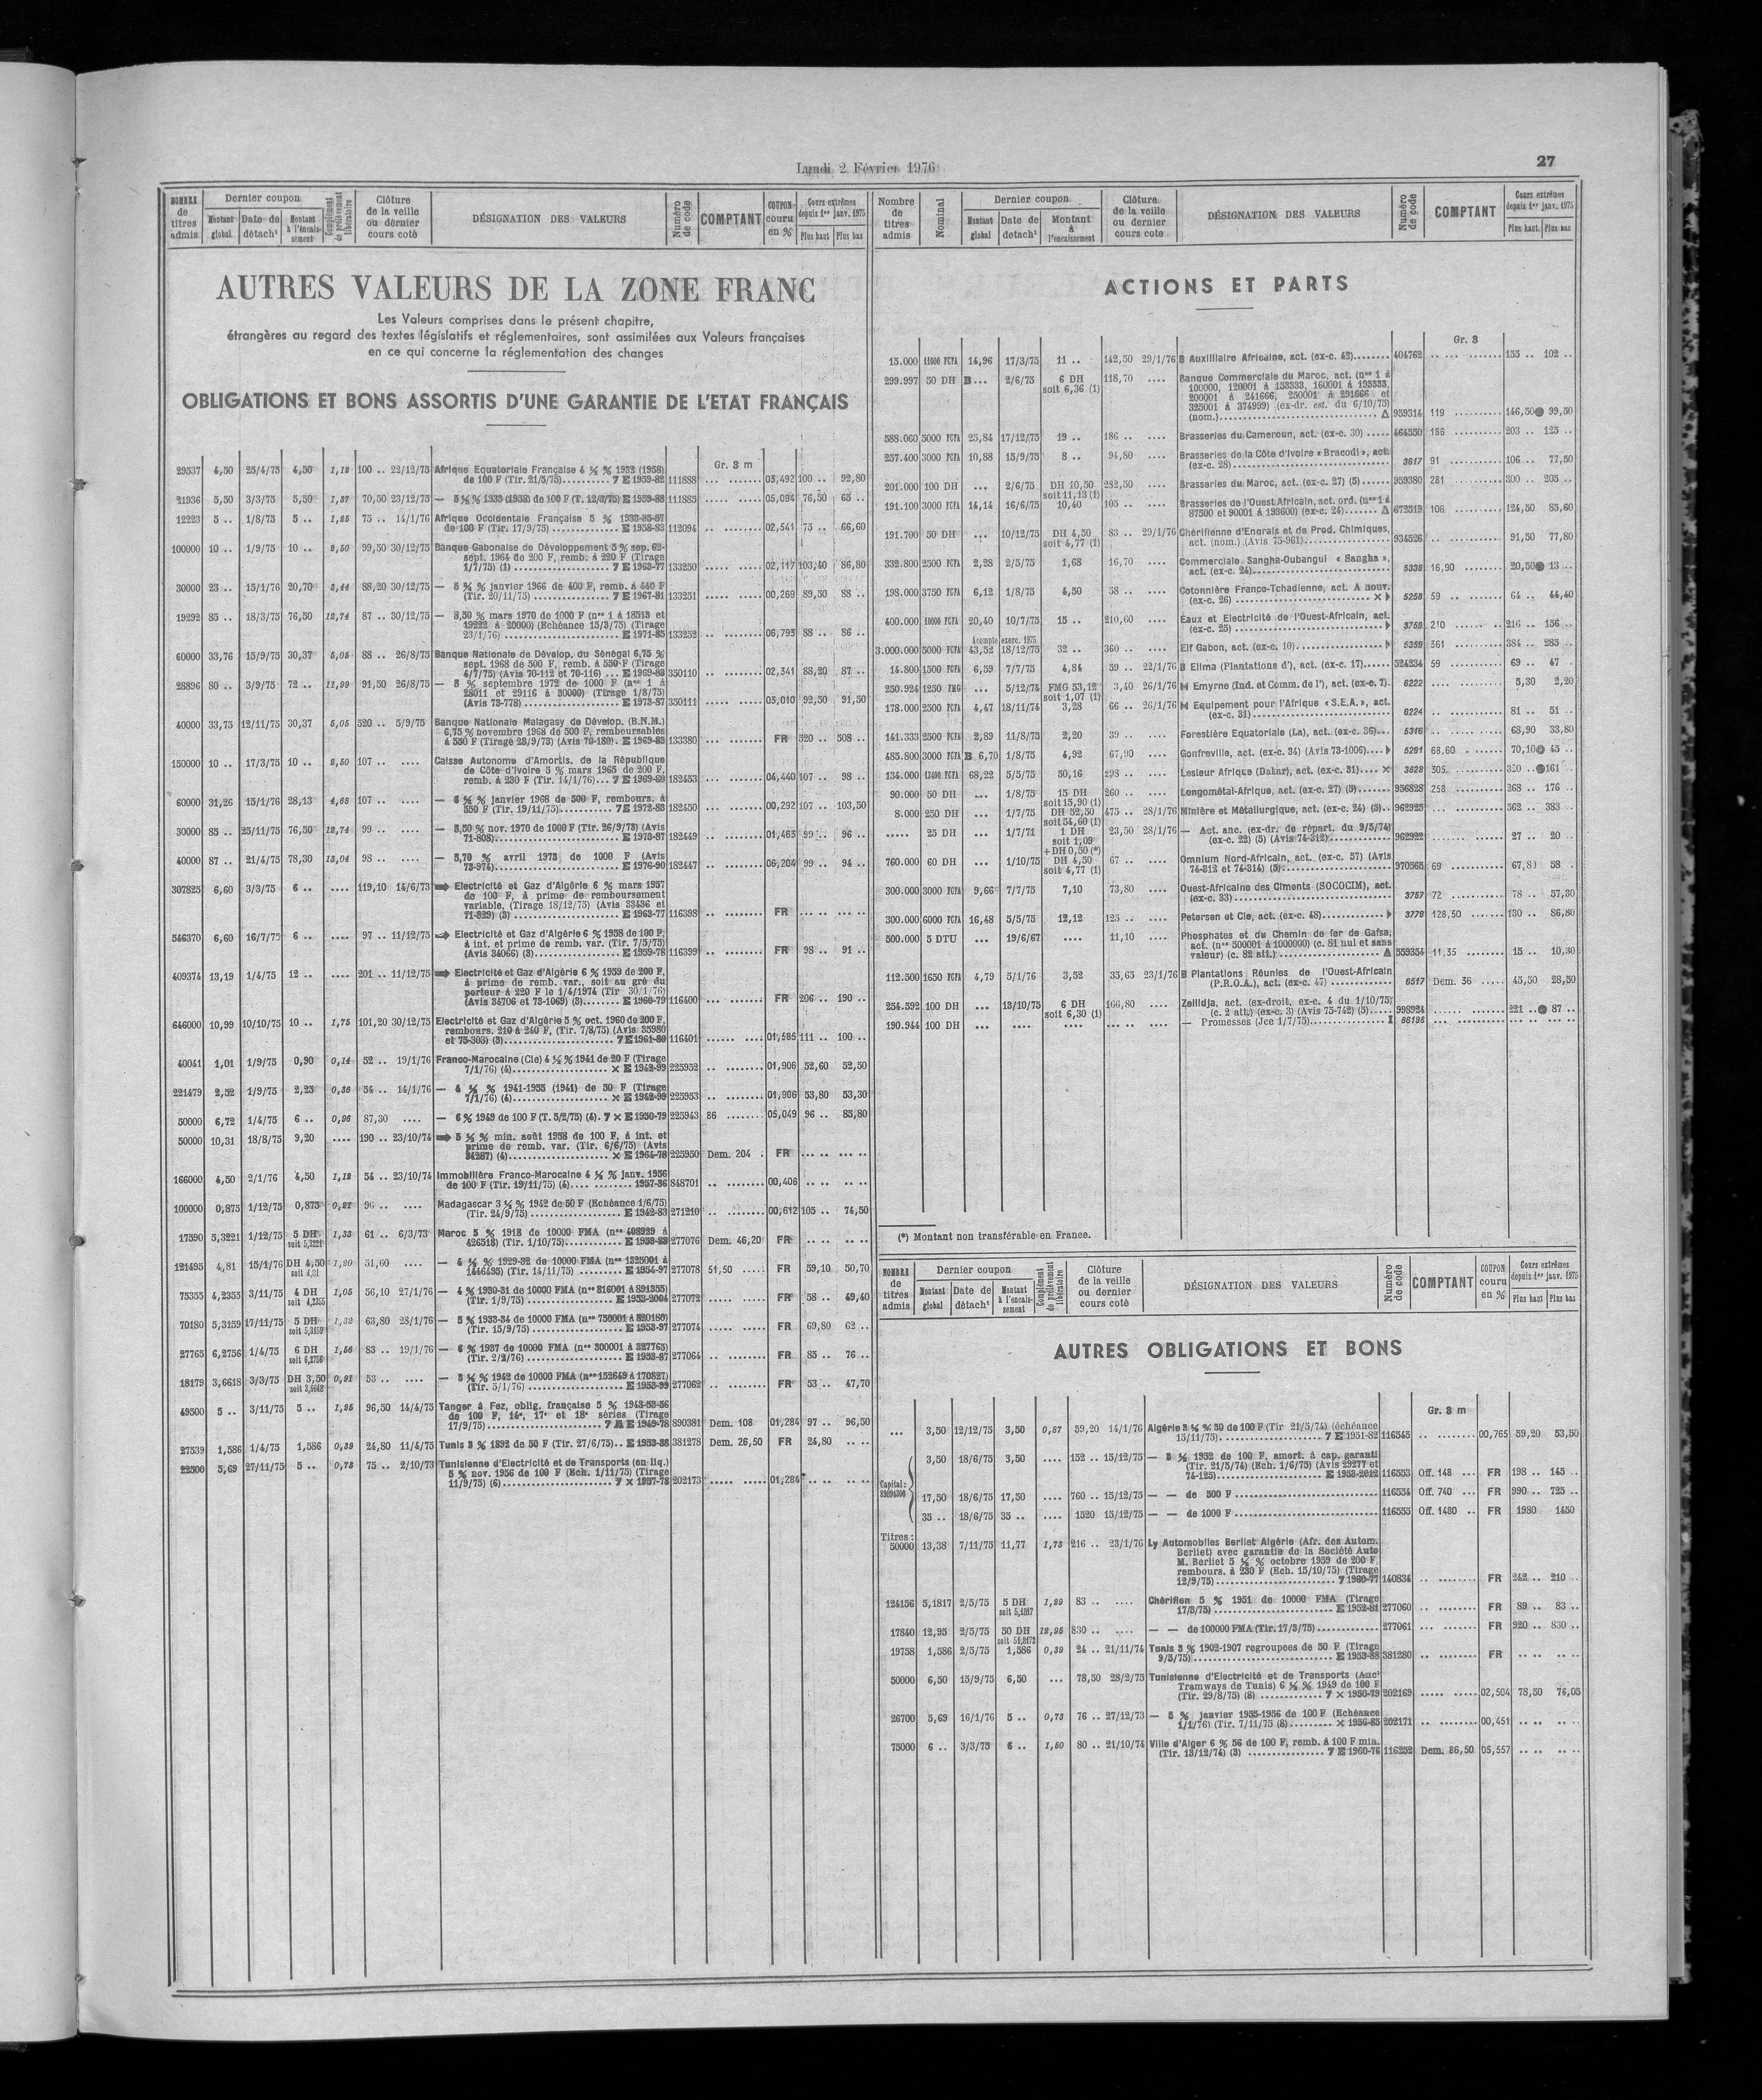 Lundi 2 Février 1976
27
NOMBRE de titres admis | Dernier coupon | Montant global | Date de détacht | Montant à l'encaissement | Complément de prélèvement libératoire | Clôture de la veille ou dernier cours coté | DÉSIGNATION DES VALEURS | Numéro de code | COMPTANT | COUPON couru en % | Cours extrêmes depuis 1er janv. 1975 | Plus haut | Plus bas
AUTRES VALEURS DE LA ZONE FRANC
Les Valeurs comprises dans le présent chapitre,
étrangères au regard des textes législatifs et réglementaires, sont assimilées aux Valeurs françaises
en ce qui concerne la réglementation des changes
OBLIGATIONS ET BONS ASSORTIS D'UNE GARANTIE DE L'ETAT FRANÇAIS
Gr. 3 m
29537 4,50 25/4/75 4,50 1,18 100 .. 22/12/75 Afrique Equatoriale Française 4 ½ % 1932 (1958)
de 100 F (Tir. 21/5/75).......... 7 E 1959-82 111888 ... ....... 03,492 100 .. 92,80
21936 5,50 3/3/75 5,50 1,37 70,50 23/12/75 — 5 ½ % 1933 (1958) de 100 F (T. 12/3/75) E 1959-83 111885 ..... ..... 05,094 76,50 65 ..
12223 5 .. 1/8/75 5 .. 1,25 75 .. 14/1/76 Afrique Occidentale Française 5 % 1933-35-57
de 100 F (Tir. 17/9/75) ............. E 1958-83 112094 .. ........ 02,541 75 .. 66,60
100000 10 .. 1/9/75 10 .. 2,50 99,50 30/12/75 Banque Gabonaise de Développement 5 % sep. 62-
sept. 1964 de 200 F, remb. à 220 F (Tirage
1/7/75) (1) .................. 7 E 1963-77 133250 ..... ..... 02,117 103,40 86,80
30000 23 .. 15/1/76 20,70 3,44 88,20 30/12/75 — 5 ¾ % janvier 1966 de 400 F, remb. à 440 F
(Tir. 20/11/75) ................ 7 E 1967-81 133251 ..... ..... 00,269 89,50 88 ..
19292 85 .. 18/3/75 76,50 12,74 87 .. 30/12/75 — 8,50 % mars 1970 de 1000 F (nos 1 à 18513 et
19222 à 20000) (Echéance 15/3/75) (Tirage
23/1/76) ....................... E 1971-85 133252 .. ........ 06,793 88 .. 86 ..
60000 33,76 15/9/75 30,37 5,05 88 .. 26/8/75 Banque Nationale de Dévelop. du Sénégal 6,75 %
sept. 1968 de 500 F, remb. à 550 F (Tirage
4/7/75) (Avis 70-112 et 70-116) ... E 1969-83 350110 .. ........ 02,341 88,20 87 ..
28896 80 .. 3/9/75 72 .. 11,99 91,50 26/8/75 — 8 % septembre 1972 de 1000 F (nos 1 à
28011 et 29116 à 30000) (Tirage 1/8/75)
(Avis 73-778) .................. E 1973-87 350111 ..... ..... 03,010 92,50 91,50
40000 33,75 12/11/75 30,37 5,05 520 .. 5/9/75 Banque Nationale Malagasy de Dévelop. (B.N.M.)
6,75 % novembre 1968 de 500 F, remboursables
à 550 F (Tirage 28/9/73) (Avis 70-180). E 1969-83 133380 ... ....... FR 520 .. 508 ..
150000 10 .. 17/3/75 10 .. 2,50 107 .. .... Caisse Autonome d'Amortis. de la République
de Côte d'Ivoire 5 % mars 1965 de 200 F,
remb. à 230 F (Tir. 14/1/76)... 7 E 1969-80 182453 ... ....... 04,440 107 .. 98 ..
60000 31,26 15/1/76 28,13 4,68 107 .. .... — 6 ¼ % janvier 1968 de 500 F, rembours. à
550 F (Tir. 19/11/75)............ 7 E 1972-83 182450 .. ........ 00,292 107 .. 103,50
30000 85 .. 25/11/75 76,50 12,74 99 .. .... — 8,50 % nov. 1970 de 1000 F (Tir. 26/9/73) (Avis
71-808)......................... E 1973-87 182449 .. ........ 01,463 99 .. 96 ..
40000 87 .. 21/4/75 78,30 13,04 98 .. .... — 8,70 % avril 1973 de 1000 F (Avis
73-974)......................... E 1976-90 182447 .. ........ 06,204 99 .. 94 ..
307825 6,60 3/3/75 6 .. .... 119,10 14/6/73 ➡ Electricité et Gaz d'Algérie 6 % mars 1957
de 100 F, à prime de remboursement
variable, (Tirage 18/12/75) (Avis 33436 et
71-829) (3) .................... E 1963-77 116398 .. ........ FR ... .. ... ..
546370 6,60 16/7/75 6 .. .... 97 .. 11/12/75 ➡ Electricité et Gaz d'Algérie 6 % 1958 de 100 F,
à int. et prime de remb. var. (Tir. 7/5/75)
(Avis 34066) (3)................ E 1959-78 116399 .. ........ FR 98 .. 91 ..
409374 13,19 1/4/75 12 .. .... 201 .. 11/12/75 ➡ Electricité et Gaz d'Algérie 6 % 1959 de 200 F,
à prime de remb. var., soit au gré du
porteur à 220 F le 1/4/1974 (Tir 30/1/76)
(Avis 34706 et 73-1069) (3)....... E 1960-79 116400 ... ....... FR 206 .. 190 ..
646000 10,99 10/10/75 10 .. 1,75 101,20 30/12/75 Electricité et Gaz d'Algérie 5 % oct. 1960 de 200 F,
rembours. 210 à 240 F, (Tir. 7/8/75) (Avis 35980
et 75-303) (3)................... 7 E 1961-80 116401 ...... .... 01,585 111 .. 100 ..
40041 1,01 1/9/75 0,90 0,14 52 .. 19/1/76 Franco-Marocaine (Cie) 4 ½ % 1941 de 20 F (Tirage
7/1/76) (4)................... × E 1942-99 225952 .. ........ 01,906 52,60 52,50
221479 2,52 1/9/75 2,25 0,36 54 .. 14/1/76 — 4 ½ % 1941-1955 (1941) de 50 F (Tirage
7/1/76) (4)................... × E 1942-99 225953 .. ........ 01,906 53,80 53,30
50000 6,72 1/4/75 6 .. 0,96 87,30 .... — 6 % 1949 de 100 F (T. 5/2/75) (4). 7 × E 1950-79 225943 86 ........ 05,049 96 .. 85,80
50000 10,31 18/8/75 9,20 .... 190 .. 23/10/74 ➡ 5 ½ % min. août 1958 de 100 F, à int. et
prime de remb. var. (Tir. 6/6/75) (Avis
34287) (4).................... × E 1964-78 225950 Dem. 204 . FR ... .. ... ..
166000 4,50 2/1/76 4,50 1,12 54 .. 23/10/74 Immobilière Franco-Marocaine 4 ½ % janv. 1956
de 100 F (Tir. 19/11/75) (4).... ........ 1957-36 848701 .. ........ 00,406 .. .. .. ..
100000 0,875 1/12/75 0,875 0,22 96 .. .... Madagascar 3 ½ % 1942 de 50 F (Echéance 1/6/75)
(Tir. 24/9/75) .................. E 1942-83 271210 .. ........ 00,612 105 .. 74,50
17590 5,3221 1/12/75 5 DH soit 5,3221 1,33 61 .. 6/3/73 Maroc 5 % 1918 de 10000 FMA (nos 408929 à
426518) (Tir. 1/10/75)........... E 1953-88 277076 Dem. 46,20 FR .. .. .. ..
121495 4,81 15/1/76 DH 4,50 soit 4,81 1,20 51,60 .... — 4 ½ % 1929-32 de 10000 FMA (nos 1325001 à
1446495) (Tir. 14/11/75) ....... E 1954-97 277078 51,50 ..... FR 59,10 50,70
75355 4,2355 3/11/75 4 DH soit 4,2355 1,05 56,10 27/1/76 — 4 % 1930-31 de 10000 FMA (nos 816001 à 891355)
(Tir. 1/9/75) .................. E 1953-2004 277072 ..... ..... FR 58 .. 49,40
70180 5,3159 17/11/75 5 DH soit 5,3159 1,32 63,80 28/1/76 — 5 % 1933-34 de 10000 FMA (nos 750001 à 820180)
(Tir. 15/9/75) .................. E 1953-97 277074 ..... ..... FR 69,80 62 ..
27765 6,2756 1/4/75 6 DH soit 6,2756 1,56 83 .. 19/1/76 — 6 % 1937 de 10000 FMA (nos 300001 à 327765)
(Tir. 2/2/76) ................... E 1953-87 277064 .. ........ FR 85 .. 76 ..
18179 3,6618 3/3/75 DH 3,50 soit 3,6618 0,91 53 .. .... — 3 ½ % 1942 de 10000 FMA (nos 152649 à 170827)
(Tir. 5/1/76) ................... E 1953-99 277062 .. ........ FR 53 .. 47,70
49500 5 .. 3/11/75 5 .. 1,25 96,50 14/4/75 Tanger à Fez, oblig. française 5 % 1943-53-56
de 100 F, 14e, 17e et 18e séries (Tirage
17/9/75)....................... 7 A E 1949-78 890381 Dem. 108 01,284 97 .. 96,50
27539 1,586 1/4/75 1,586 0,39 24,80 11/4/75 Tunis 3 % 1892 de 50 F (Tir. 27/6/75).. E 1953-88 381278 Dem. 26,50 FR 24,80 .. ..
22500 5,69 27/11/75 5 .. 0,73 75 .. 2/10/73 Tunisienne d'Electricité et de Transports (en liq.)
5 % nov. 1956 de 100 F (Ech. 1/11/75) (Tirage
11/9/75) (6)..................... 7 × 1957-78 202173 ..... ..... 01,284 .. .. .. ..
Nombre de titres admis | Nominal | Dernier coupon | Montant global | Date de détacht | Montant à l'encaissement | Clôture de la veille ou dernier cours coté | DÉSIGNATION DES VALEURS | Numéro de code | COMPTANT | Cours extrêmes depuis 1er janv. 1975 | Plus haut | Plus bas
ACTIONS ET PARTS
Gr. 3
15.000 11000 FCFA 14,96 17/3/75 11 .. 142,50 29/1/76 B Auxilliaire Africaine, act. (ex-c. 42)........ 404762 .. ... ....... 155 .. 102 ..
299.997 50 DH B... 2/6/75 6 DH soit 6,36 (1) 118,70 .... Banque Commerciale du Maroc, act. (nos 1 à
100000, 120001 à 153333, 160001 à 193333,
200001 à 241666, 250001 à 291666 et
325001 à 374999) (ex-dr. est. du 6/10/75)
(nom.)................................ Δ 959314 119 .......... 146,50● 99,50
588.060 5000 FCFA 25,84 17/12/75 19 .. 186 .. .... Brasseries du Cameroun, act. (ex-c. 30) ..... 464550 186 .......... 203 .. 125 ..
257.400 3000 FCFA 10,88 15/9/75 8 .. 94,80 .... Brasseries de la Côte d'Ivoire « Bracodi », act.
(ex-c. 28)................................ 3617 91 .......... 106 .. 77,50
201.000 100 DH ... 2/6/75 DH 10,50 soit 11,13 (1) 282,50 .... Brasseries du Maroc, act. (ex-c. 27) (5) ...... 959380 281 .......... 300 .. 205 ..
191.100 3000 FCFA 14,14 16/6/75 10,40 105 .. .... Brasseries de l'Ouest Africain, act. ord. (nos 1 à
87500 et 90001 à 193600) (ex-c. 24)....... Δ 672519 106 .......... 124,50 85,60
191.700 50 DH ... 10/12/75 DH 4,50 soit 4,77 (1) 83 .. 29/1/76 Chérifienne d'Engrais et de Prod. Chimiques,
act. (nom.) (Avis 75-961)................. 934526 .. .......... 91,50 77,80
332.800 2500 FCFA 2,28 2/5/75 1,68 16,70 .... Commerciale Sangha-Oubangui « Sangha »,
act. (ex-c. 24)............................ 5338 16,90 ........ 20,50● 13 ..
198.000 3750 FCFA 6,12 1/8/75 4,50 58 .. .... Cotonnière Franco-Tchadienne, act. A nouv.
(ex-c. 26) ............................ × ▶ 5258 59 .. ........ 64 .. 44,40
400.000 10000 FCFA 20,40 10/7/75 15 .. 210,60 .... Eaux et Electricité de l'Ouest-Africain, act.
(ex-c. 25) .............................. ▶ 3759 210 .......... 216 .. 156 ..
Acompte exerc. 1975
3.000.000 5000 FCFA 43,52 18/12/75 32 .. 360 .. .... Elf Gabon, act. (ex-c. 10)................... ▶ 5359 361 .......... 384 .. 285 ..
14.800 1500 FCFA 6,59 7/7/75 4,84 59 .. 22/1/76 B Elima (Plantations d'), act. (ex-c. 17)...... 524234 59 .......... 69 .. 47 ..
250.924 1250 FMG ... 5/12/74 FMG 53,12 soit 1,07 (1) 3,40 26/1/76 M Emyrne (Ind. et Comm. de l'), act. (ex-c. 7). 6222 .... .......... 5,30 2,20
178.000 2500 FCFA 4,47 18/11/74 3,28 66 .. 26/1/76 M Equipement pour l'Afrique « S.E.A. », act.
(ex-c. 31)............................. 6224 .. .......... 81 .. 51 ..
141.333 2500 FCFA 2,89 11/8/75 2,20 39 .. .... Forestière Equatoriale (La), act. (ex-c. 36)... 5316 .. .......... 68,90 33,80
485.800 3000 FCFA B 6,70 1/8/75 4,92 67,90 .... Gonfreville, act. (ex-c. 34) (Avis 73-1006).... ▶ 5291 68,60 . ....... 70,10● 45 ..
134.000 13400 FCFA 68,22 5/5/75 50,16 298 .. .... Lesieur Afrique (Dakar), act. (ex-c. 31).... × 3828 305 .......... 320 ..●161 ..
90.000 50 DH ... 1/8/75 15 DH soit 15,90 (1) 260 .. .... Longométal-Afrique, act. (ex-c. 27) (5)....... 956828 258 .......... 268 .. 176 ..
8.000 250 DH ... 1/7/75 DH 52,50 soit 54,60 (1) 475 .. 28/1/76 Minière et Métallurgique, act. (ex-c. 24) (5).. 962925 ... ....... 562 .. 383 ..
..... 25 DH ... 1/7/71 1 DH soit 1,09 + DH 0,50 (*) 23,50 28/1/76 — Act. anc. (ex-dr. de répart. du 9/5/74)
(ex-c. 22) (5) (Avis 74-312)............ 962922 ... ....... 27 .. 20 ..
760.000 60 DH ... 1/10/75 DH 4,50 soit 4,77 (1) 67 .. .... Omnium Nord-Africain, act. (ex-c. 57) (Avis
74-312 et 74-314) (5)..................... 970565 69 .......... 67,80 58 ..
300.000 3000 FCFA 9,66 7/7/75 7,10 73,80 .... Ouest-Africaine des Ciments (SOCOCIM), act.
(ex-c. 33)................................ 3757 72 .......... 78 .. 57,30
300.000 6000 FCFA 16,48 5/5/75 12,12 125 .. .... Petersen et Cie, act. (ex-c. 48)............. ▶ 3779 128,50 ....... 130 .. 86,80
500.000 5 DTU ... 19/6/67 .... 11,10 .... Phosphates et du Chemin de fer de Gafsa,
act. (nos 500001 à 1000000) (c. 81 nul et sans
valeur) (c. 82 att.)..................... Δ 559354 11,35 ....... 15 .. 10,30
112.500 1650 FCFA 4,79 5/1/76 3,52 33,65 23/1/76 B Plantations Réunies de l'Ouest-Africain
(P.R.O.A.), act. (ex-c. 47) ............. 6517 Dem. 36 ..... 45,50 28,50
254.592 100 DH ... 13/10/75 6 DH soit 6,30 (1) 166,80 .... Zellidja, act. (ex-droit, ex-c. 4 du 1/10/75)
(c. 2 att.) (ex-c. 3) (Avis 75-742) (5)..... 998924 ...... ....... 221 ..● 87 ..
190.944 100 DH ... .... .... ... .. .... — Promesses (Jce 1/7/75)................ I 86196 ... .......... ... .. ... ..
(*) Montant non transférable en France.
NOMBRE de titres admis | Dernier coupon | Montant global | Date de détacht | Montant à l'encaissement | Complément de prélèvement libératoire | Clôture de la veille ou dernier cours coté | DÉSIGNATION DES VALEURS | Numéro de code | COMPTANT | COUPON couru en % | Cours extrêmes depuis 1er janv. 1975 | Plus haut | Plus bas
AUTRES OBLIGATIONS ET BONS
Gr. 3 m
... 3,50 12/12/75 3,50 0,87 59,20 14/1/76 Algérie 3 ½ % 50 de 100 F (Tir 21/5/74) (échéance
15/11/75)..................... 7 E 1951-82 116545 .. ........ 00,765 59,20 53,50
Capital:
3,50 18/6/75 3,50 .... 152 .. 15/12/75 — 3 ½ 1952 de 100 F, amort. à cap. garanti
(Tir. 21/5/74) (Ech. 1/6/75) (Avis 29277 et
74-125)...................... E 1953-2012 116553 Off. 148 ... FR 198 .. 145 ..
17,50 18/6/75 17,50 .... 760 .. 15/12/75 — — de 500 F ............................. 116554 Off. 740 ... FR 990 .. 725 ..
35 .. 18/6/75 35 .. .... 1520 15/12/75 — — de 1000 F ............................. 116555 Off. 1480 .. FR 1980 1450
Titres:
50000 13,38 7/11/75 11,77 1,73 216 .. 23/1/76 Ly Automobiles Berliet Algérie (Afr. des Autom.
Berliet) avec garantie de la Société Auto
M. Berliet 5 ½ % octobre 1959 de 200 F,
rembours. à 230 F (Ech. 15/10/75) (Tirage
12/9/75)........................ 7 1960-77 140834 .. ........ FR 242 .. 210 ..
124156 5,1817 2/5/75 5 DH soit 5,1817 1,29 83 .. .... Chérifien 5 % 1951 de 10000 FMA (Tirage
17/3/75)........................ E 1952-81 277060 .. ........ FR 89 .. 83 ..
17840 12,95 2/5/75 50 DH soit 51,8172 12,95 830 .. .... — — de 100000 FMA (Tir. 17/3/75)............. 277061 ... ....... FR 920 .. 830 ..
19758 1,586 2/5/75 1,586 0,39 24 .. 21/11/74 Tunis 3 % 1902-1907 regroupées de 50 F (Tirage
9/5/75)............................ E 1953-88 381280 .. ........ FR .. .. .. ..
50000 6,50 15/9/75 6,50 ... 78,50 28/2/75 Tunisienne d'Electricité et de Transports (Anct
Tramways de Tunis) 6 ½ % 1949 de 100 F
(Tir. 29/8/75) (8) ............. 7 × 1950-79 202169 ..... ..... 02,504 78,50 76,05
26700 5,69 16/1/76 5 .. 0,73 76 .. 27/12/73 — 5 % janvier 1955-1956 de 100 F (Echéance
1/1/76) (Tir. 7/11/75 (8)......... × 1956-85 202171 .. ........ 00,451 .. .. .. ..
75000 6 .. 3/3/75 6 .. 1,50 80 .. 21/10/74 Ville d'Alger 6 % 56 de 100 F, remb. à 100 F min.
(Tir. 13/12/74) (3) ................ 7 E 1960-76 116252 Dem. 86,50 05,557 .. .. .. ..